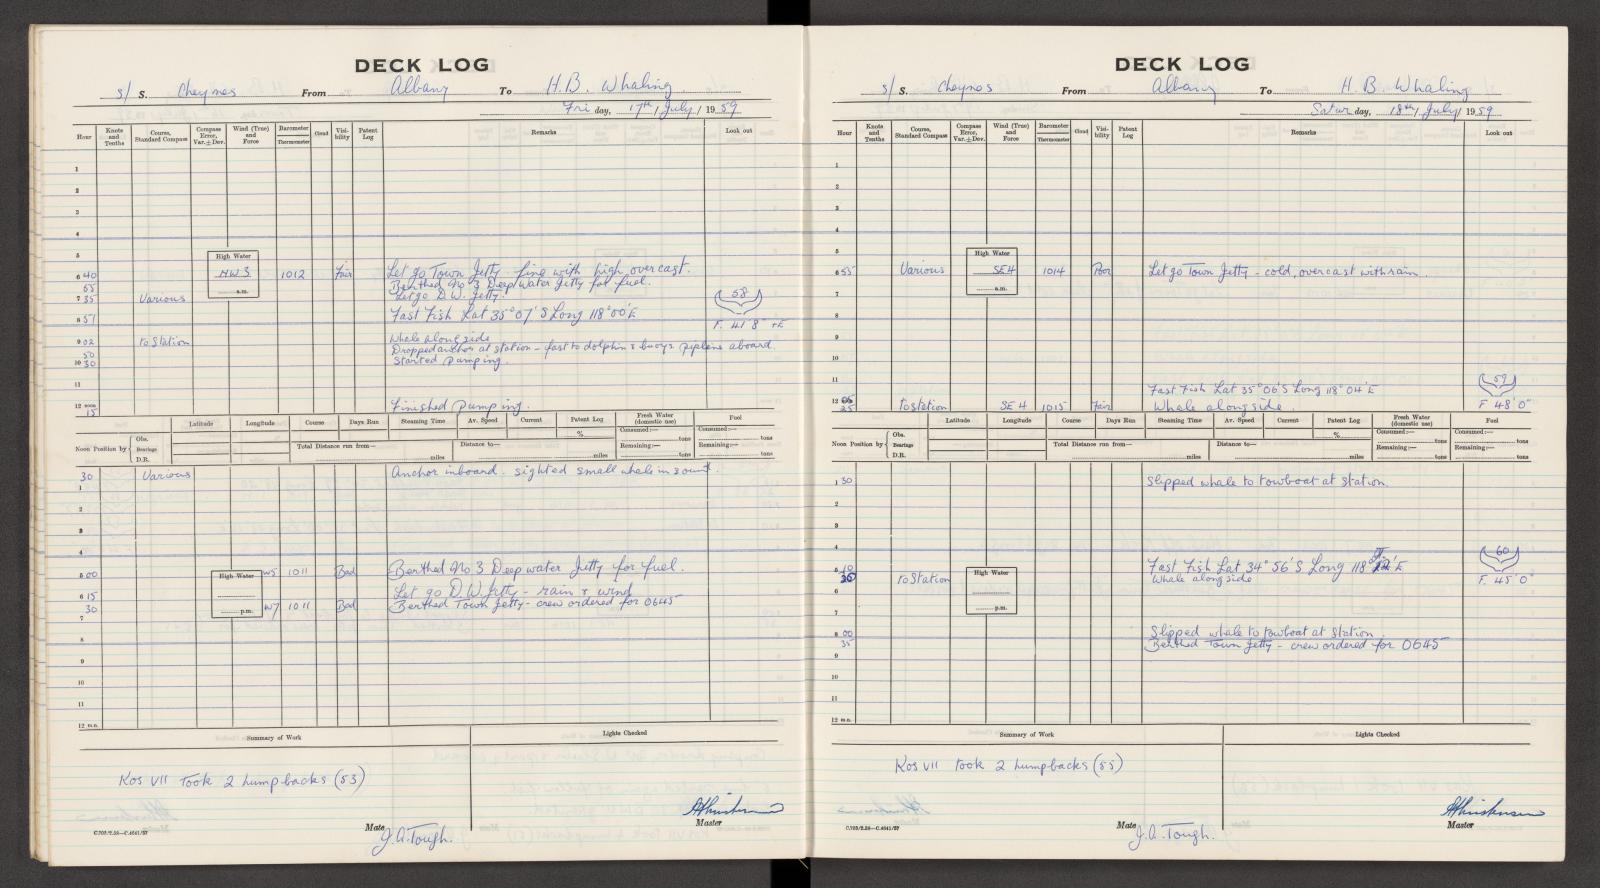 DECK LOG
s/ S. Cheynes From Albany To H.B. Whaling
Fri day, 17th / July / 1959
Hour Knots and Tenths Course, Standard Compass Compass Error, Var. ± Dev. Wind (True) and Force Barometer Thermometer Cloud Visibility Patent Log Remarks Look out
1
2
3
4
5
High Water
6 40 NW 3 1012 Fair Let go Town Jetty - fine with high overcast.
55 Berthed No 3 Deep water Jetty for fuel.
a.m.
7 35 Various Let go D.W. Jetty.
58
8 51 Fast Fish Lat 35° 07' S Long 118° 00' E
F. 41' 8" +E
9 02 to Station Whale alongside
50 Dropped anchor at station - fast to dolphin & buoys pipeline aboard.
10 30 Started pumping.
11
12 noon 15 Finished pumping.
Latitude Longitude Course Days Run Steaming Time Av. Speed Current Patent Log Fresh Water (domestic use) Fuel
Noon Position by Obs. Bearings D.R. % Consumed:— tons Consumed:— tons
Total Distance run from— miles Distance to— miles Remaining:— tons Remaining:— tons
30 Various Anchor inboard. sighted small whale in sound.
1
2
3
4
5 00 High Water W5 1011 Bad Berthed No 3 Deep water Jetty for fuel.
6 15 Let go D.W. Jetty - rain & wind
30 p.m. W7 1011 Bad Berthed Town Jetty - crew ordered for 0645
7
8
9
10
11
12 m.n.
Summary of Work Lights Checked
Kos VII took 2 humpbacks (53)
Master
C.702/2.58—C.4641/57
Mate J.A. Tough.
DECK LOG
s/ S. Cheynes From Albany To H.B. Whaling
Satur day, 18th / July / 1959
Hour Knots and Tenths Course, Standard Compass Compass Error, Var. ± Dev. Wind (True) and Force Barometer Thermometer Cloud Visibility Patent Log Remarks Look out
1
2
3
4
5
High Water
6 55 Various SE 4 1014 Poor Let go Town Jetty - cold, overcast with rain.
a.m.
7
8
9
10
11
59
Fast Fish Lat 35° 06' S Long 118° 04' E
12 25 to station SE 4 1015 Fair Whale alongside. F 48' 0"
Latitude Longitude Course Days Run Steaming Time Av. Speed Current Patent Log Fresh Water (domestic use) Fuel
Noon Position by Obs. Bearings D.R. % Consumed:— tons Consumed:— tons
Total Distance run from— miles Distance to— miles Remaining:— tons Remaining:— tons
1 30 Slipped whale to towboat at station.
2
3
4
60
5 10 High Water Fast Fish Lat 34° 56' S Long 118° E
to Station Whale alongside F. 45' 0"
6
p.m.
7
8 00 Slipped whale to towboat at station.
35 Berthed Town Jetty - crew ordered for 0645
9
10
11
12 m.n.
Summary of Work Lights Checked
Kos VII took 2 humpbacks (55)
Master
C.702/2.58—C.4641/57
Mate J.A. Tough.